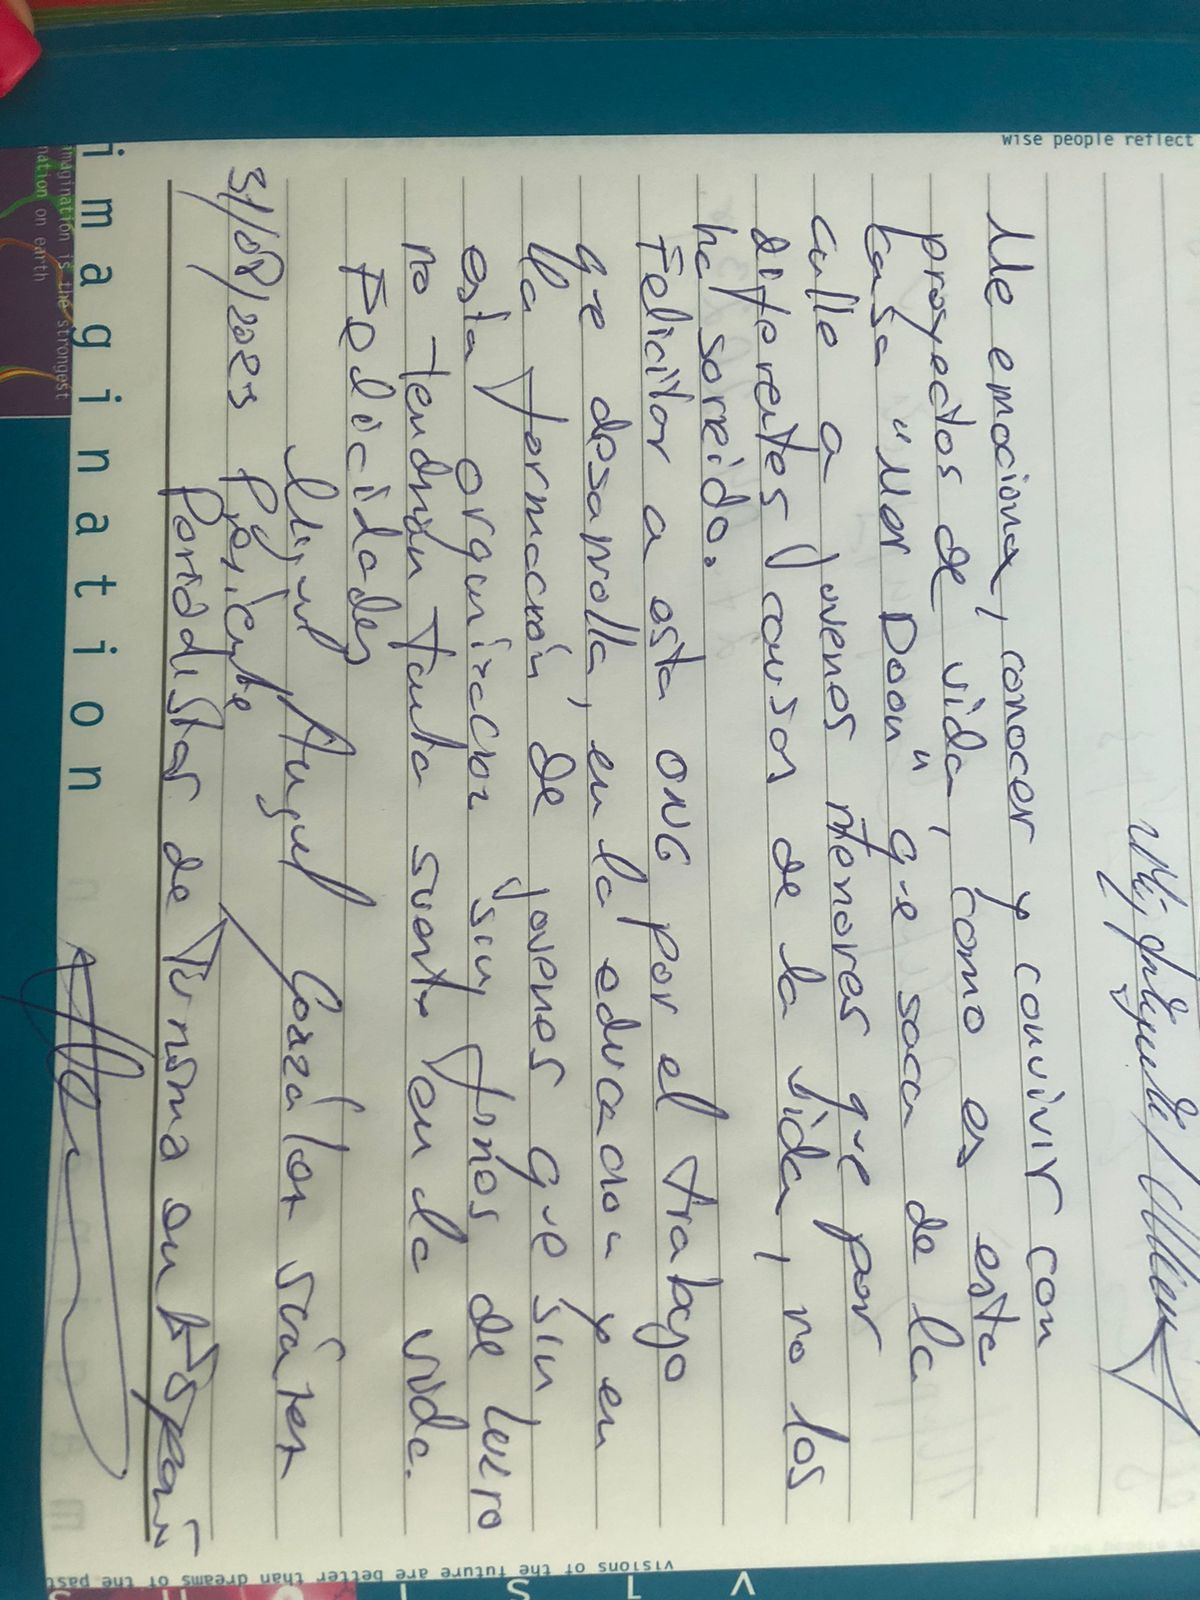 wise people reflect
Me emociona, conocer y convivir con
proyectos de vida, como es esta
casa "Mer Doon" que saca de la
calle a jovenes menores que por
diferentes causas de la vida, no los
ha sonreido.
Felicitar a esta ONG por el trabajo
que desarrolla, en la educacion y en
la formación de jovenes que sin
esta organizacion sin fines de lucro
no tendrian tanta suerte en la vida.
Felicidades
Miguel Angel González Suárez
31/08/2023 Presidente
Periodistas de Turismo en España
imagination
imagination is the strongest
nation on earth
visions of the future are better than dreams of the past